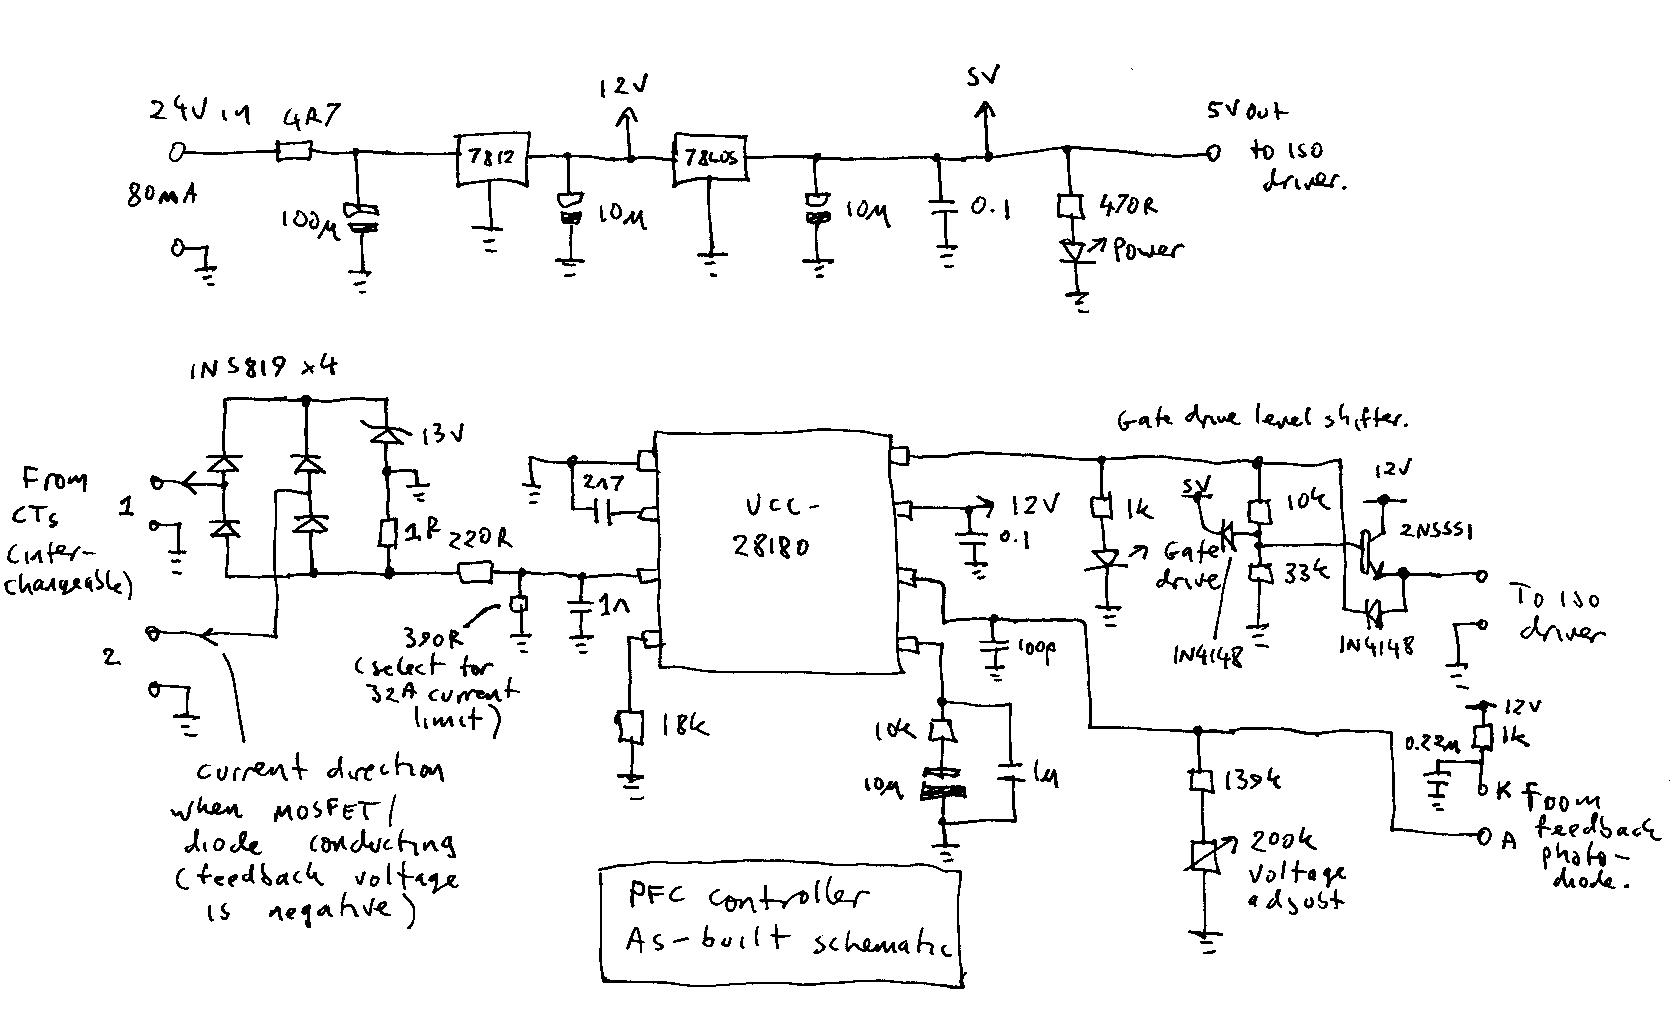 24V in
4R7
80mA
100µ
7812
10µ
12V
78L05
10µ
0.1
5V
470R
Power
5V out
to iso
driver.
1N5819 x4
13V
From
CTs
(inter-
changeable)
1
2
1R
220R
390R
(select for
32A current
limit)
1n
2n7
18k
UCC-
28180
12V
0.1
100p
10k
10µ
1µ
Gate drive level shifter.
1k
Gate
drive
5V
10k
33k
1N4148
12V
2N5551
1N4148
To iso
driver
12V
1k
0.22µ
K
A
From
feedback
photo-
diode.
139k
200k
Voltage
adjust
current direction
when MOSFET/
diode conducting
(feedback voltage
is negative)
PFC controller
As-built schematic